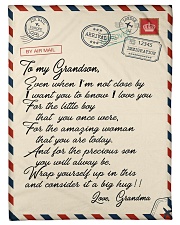 BY AIR MAIL
ARRIVED
12345
IMMIGRATION
To my Grandson,
Even when I'm not close by
I want you to know I love you
For the little boy
that you once were,
For the amazing woman
that you are today,
And for the precious son
you will alway be.
Wrap yourself up in this
and consider it a big hug!!
Love, Grandma